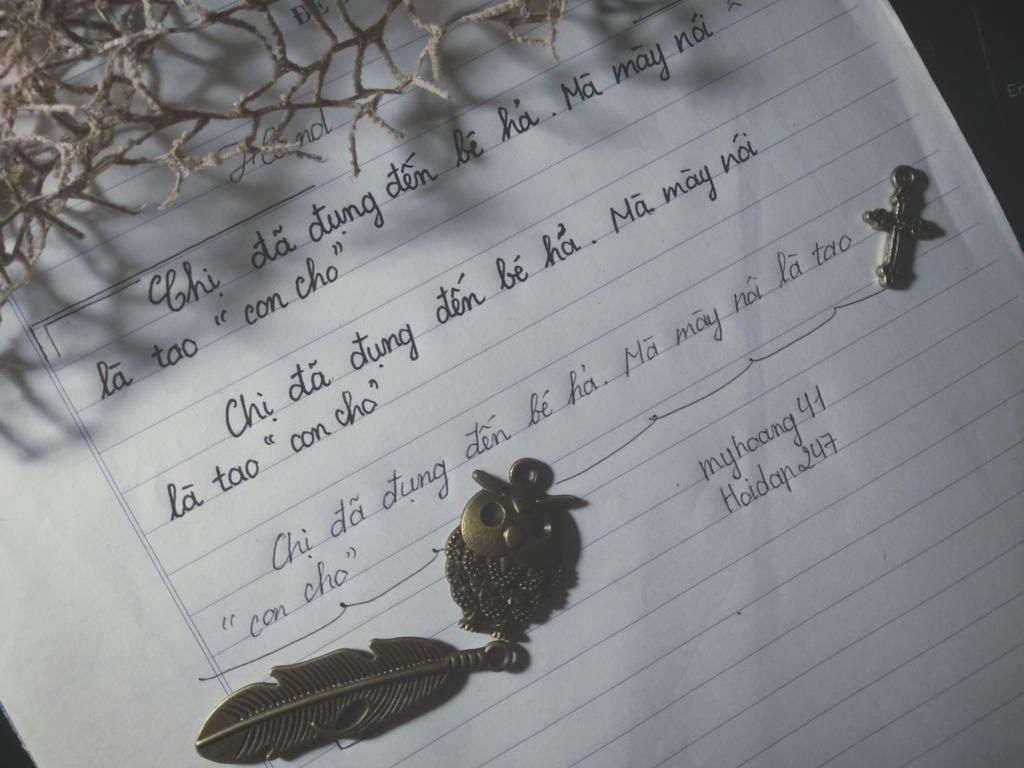 Chị đã đụng đến bé hả. Mà mày nói
là tao "con chó"
Chị đã đụng đến bé hả. Mà mày nói
là tao "con chó"
Chị đã đụng đến bé hả. Mà mày nói là tao
"con chó"
myhoang41
Hoidap247